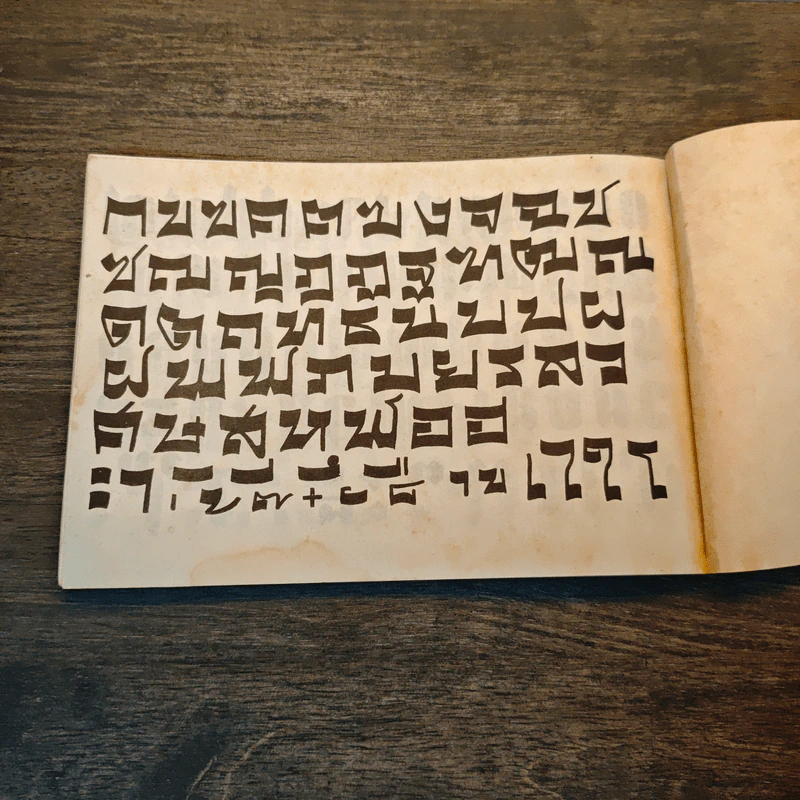 กขฃคฅฆงจฉช
ซฌญฎฏฐฑฒณ
ดตถทธนบปผ
ฝพฟภมยรลว
ศษสหฬอฮ
ะา